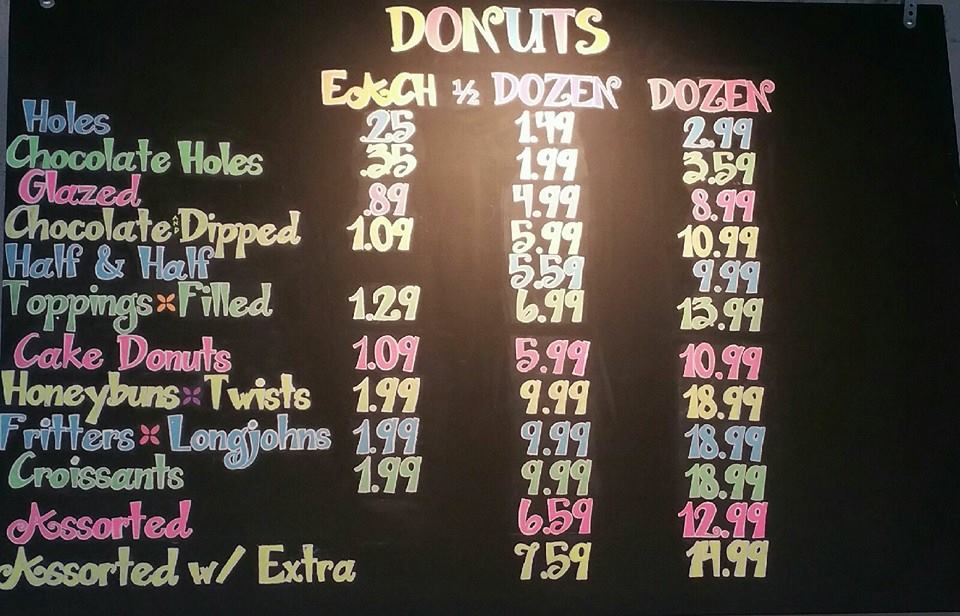 DONUTS
EACH ½ DOZEN DOZEN
Holes .25 1.49 2.99
Chocolate Holes .35 1.99 3.59
Glazed .89 4.99 8.99
Chocolate AND Dipped 1.09 5.99 10.99
Half & Half 5.59 9.99
Toppings Filled 1.29 6.99 13.99
Cake Donuts 1.09 5.99 10.99
Honeybuns Twists 1.99 9.99 18.99
Fritters Longjohns 1.99 9.99 18.99
Croissants 1.99 9.99 18.99
Assorted 6.59 12.99
Assorted w/ Extra 7.59 14.99